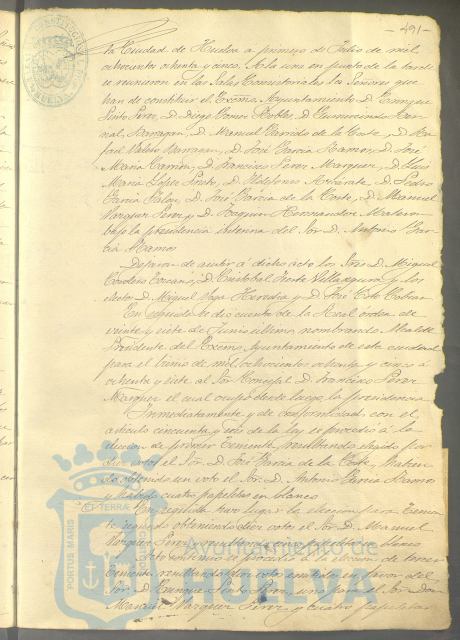 -491-
la Ciudad de Huelva a primero de Julio de mil
ochocientos ochenta y cinco. A la una en punto de la tarde
se reunieron en las Salas Consistoriales los Señores que
han de constituir el Excmo Ayuntamiento D. Enrique
Pinto Perez, D. Diego Robles, D. Gumersindo
Barragan, D. Manuel Garrido de la Corte, D. Ra
fael Navarro, D. José Garcia Ramos, D. José
Maria Carrion, D. Francisco Perez Marquez, D. Luis
Maria Lopez Prieto, D. Ildefonso Arizarate, D. Pedro
Garcia D. José Garcia de la Corte, D. Manuel
Vazquez Perez y D. Joaquin Hernandez Mateos
bajo la presidencia interina del Sor D. Antonio Gar
cia Ramos
Dejaron de asistir á dicho acto los Sres D. Miguel
Cordero D. Cristobal Villaseñor y los
D. Miguel Vega Heredia y D. José Toto
En seguida se dió cuenta de la Real orden de
veinte y siete de Junio último nombrando Alcalde
Presidente del Excmo Ayuntamiento de esta ciudad
para el bienio de mil ochocientos ochenta y cinco á
ochenta y siete al Sor Concejal D. Francisco Perez
Marquez el cual ocupó desde luego la presidencia
Inmediatamente y de conformidad con el
articulo cincuenta y tres de la ley se procedió á la
eleccion de primer Teniente, resultando elegido por
diez votos el Sor. D. José Garcia de la Corte, habien
do obtenido un voto el Sor. D. Antonio Garcia Ramos
y cuatro papeletas en blanco
En seguida tuvo lugar la eleccion para Tenien
te segundo obteniendo diez votos el Sor D. Manuel
Vazquez Perez y en blanco
se procedió á la eleccion de tercer
Teniente, resultando votos emitidos en favor del
Sor D. Enrique Pinto Perez, uno para el Sor Don
Manuel Vazquez Perez y cuatro papeletas
PORTUS MARIS
ET TERRÆ
Ayuntamiento de
HUELVA